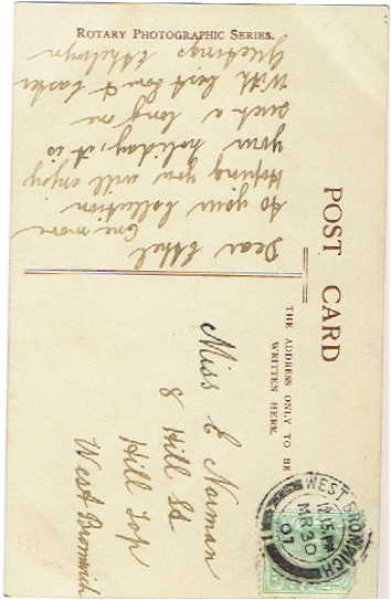 ROTARY PHOTOGRAPHIC SERIES.
POST CARD
THE ADDRESS ONLY TO BE
WRITTEN HERE.
Dear Ethel
One more
to your collection
Hoping you will enjoy
your holiday, it is
such a long one
With best love & Easter
Greetings Ethelwyn
Miss E Norman
8 Hill St
Hill Top
West Bromwich
WEST BROMWICH
12.15 PM
MR 30
07